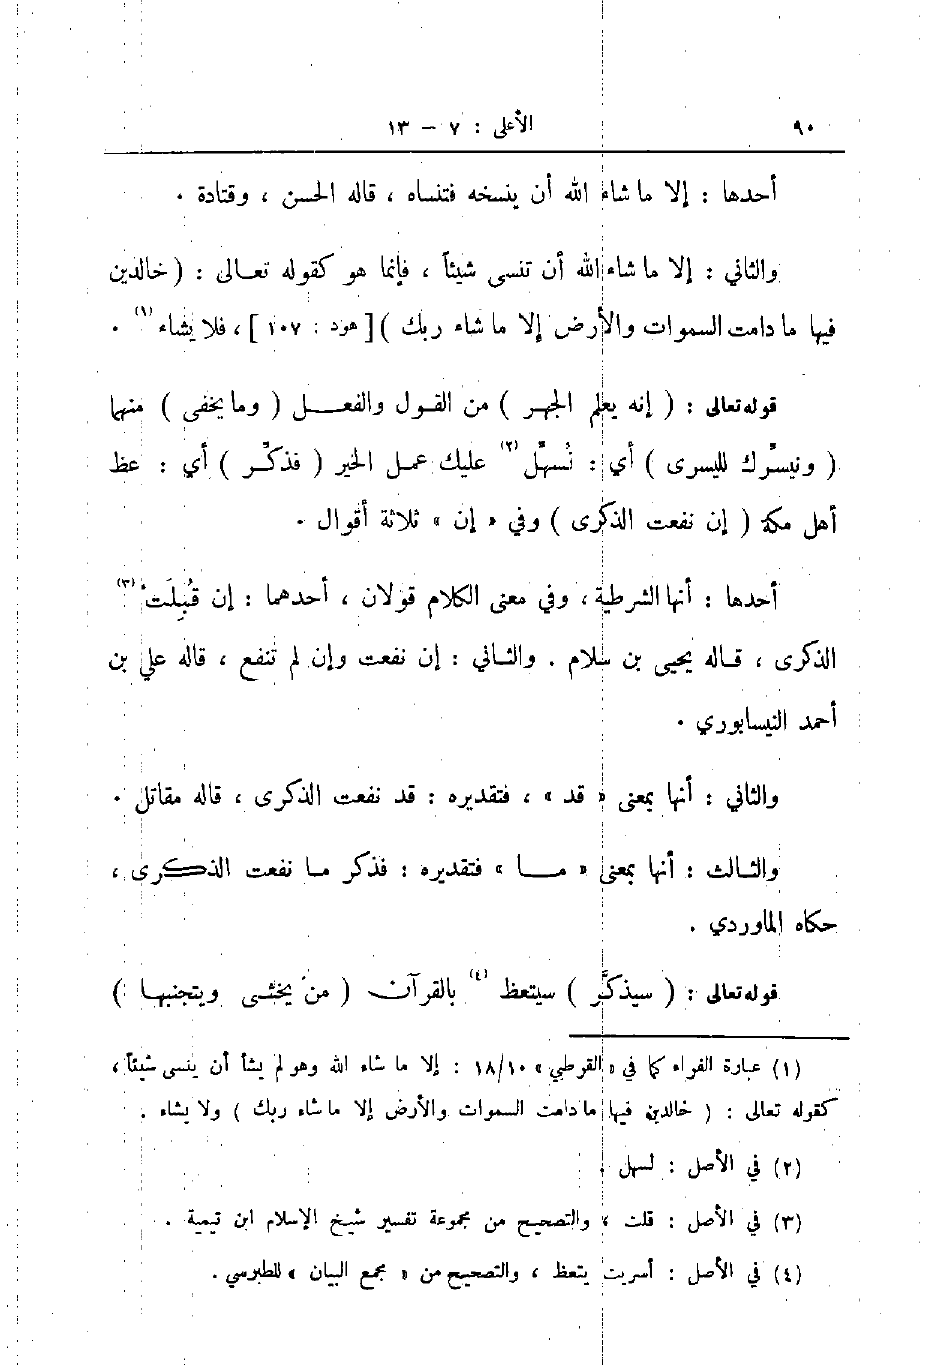 ٩٠ الأعلى : ٧ – ١٣
أحدها : إلا ما شاء الله أن ينسخه فتنساه ، قاله الحسن ، وقتادة .
والثاني : إلا ما شاء الله أن تنسى شيئاً ، فإنما هو كقوله تعالى : ( خالدين
فيها ما دامت السموات والأرض إلا ما شاء ربك ) [ هود : ١٠٧ ] ، فلا يشاء (١) .
قوله تعالى : ( إنه يعلم الجهر ) من القول والفعل ( وما يخفى ) منهما
( ونيسِّرك لليسرى ) أي : نُسهِّل (٢) عليك عمل الخير ( فذكِّر ) أي : عظ
أهل مكة ( إن نفعت الذكرى ) وفي « إن » ثلاثة أقوال .
أحدها : أنها الشرطية ، وفي معنى الكلام قولان ، أحدهما : إن قُبِلَت (٣)
الذكرى ، قاله يحيى بن سلام . والثاني : إن نفعت وإن لم تنفع ، قاله علي بن
أحمد النيسابوري .
والثاني : أنها بمعنى « قد » ، فتقديره : قد نفعت الذكرى ، قاله مقاتل .
والثالث : أنها بمعنى « ما » فتقديره : فذكر ما نفعت الذكرى ،
حكاه الماوردي .
قوله تعالى : ( سيذكَّر ) سيتعظ (٤) بالقرآن ( من يخشى ويتجنبها )
(١) عبارة الفراء كما في « القرطبي » ١٨/١٠ : إلا ما شاء الله وهو لم يشأ أن ينسى شيئاً ،
كقوله تعالى : ( خالدين فيها ما دامت السموات والأرض إلا ما شاء ربك ) ولا يشاء .
(٢) في الأصل : لسهل .
(٣) في الأصل : قلت ، والتصحيح من مجموعة تفسير شيخ الإسلام ابن تيمية .
(٤) في الأصل : أسريت يتعظ ، والتصحيح من « مجمع البيان » للطبرسي .